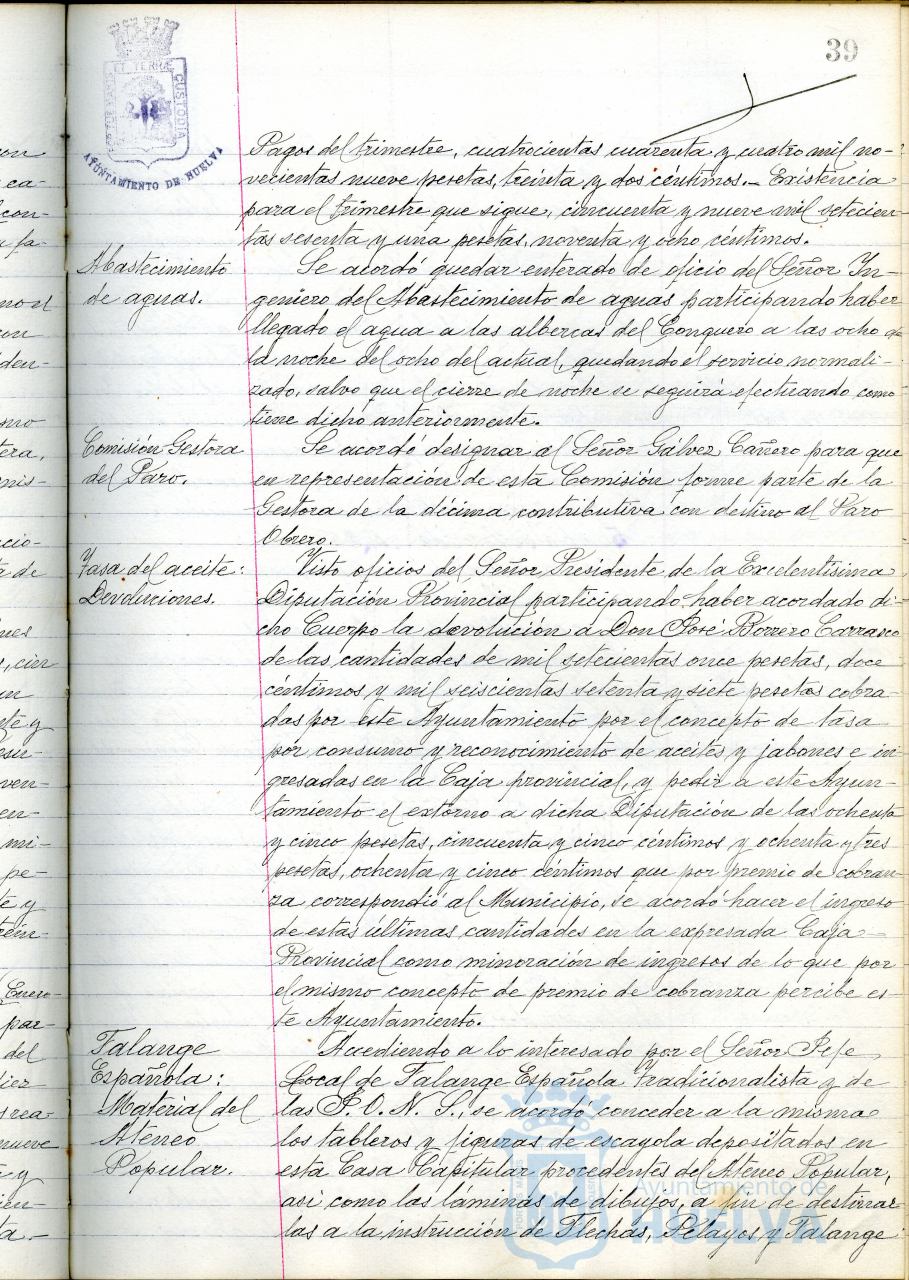 39
PORTUS MARIS ET TERRÆ CUSTODIA
AYUNTAMIENTO DE HUELVA
Pagos del trimestre, cuatrocientas cuarenta y cuatro mil no-
vecientas nueve pesetas, treinta y dos céntimos.- Existencia
para el trimestre que sigue, cincuenta y nueve mil setecien-
tas sesenta y una pesetas, noventa y ocho céntimos.
Abastecimiento
de aguas.
Se acordó quedar enterado de oficio del Señor In-
geniero del Abastecimiento de aguas participando haber
llegado el agua a las albercas del Conquero a las ocho de
la noche del ocho del actual, quedando el servicio normali-
zado, salvo que el cierre de noche se seguirá efectuando como
tiene dicho anteriormente.
Comisión Gestora
del Paro.
Se acordó designar al Señor Gálvez Cañero para que
en representación de esta Comisión forme parte de la
Gestora de la décima contributiva con destino al Paro
Obrero.
Tasa del aceite:
Devoluciones.
Visto oficios del Señor Presidente de la Excelentísima
Diputación Provincial participando haber acordado di-
cho Cuerpo la devolución a Don José Borrero Carrasco
de las cantidades de mil setecientas once pesetas, doce
céntimos y mil seiscientas setenta y siete pesetas cobra-
das por este Ayuntamiento por el concepto de tasa
por consumo y reconocimiento de aceites y jabones e in-
gresadas en la Caja provincial, y pedir a este Ayun-
tamiento el extorno a dicha Diputación de las ochenta
y cinco pesetas, cincuenta y cinco céntimos y ochenta y tres
pesetas, ochenta y cinco céntimos que por premio de cobran-
za correspondió al Municipio, se acordó hacer el ingreso
de estas últimas cantidades en la expresada Caja
Provincial como minoración de ingresos de lo que por
el mismo concepto de premio de cobranza percibe es-
te Ayuntamiento.
Falange
Española:
Material del
Ateneo
Popular.
Accediendo a lo interesado por el Señor Jefe
Local de Falange Española Tradicionalista y de
las J.O.N.S., se acordó conceder a la misma
los tableros y figuras de escayola depositados en
esta Casa Capitular procedentes del Ateneo Popular,
así como las láminas de dibujos, a fin de destinar-
las a la instrucción de Flechas, Pelayos y Falange
Ayuntamiento de
HUELVA